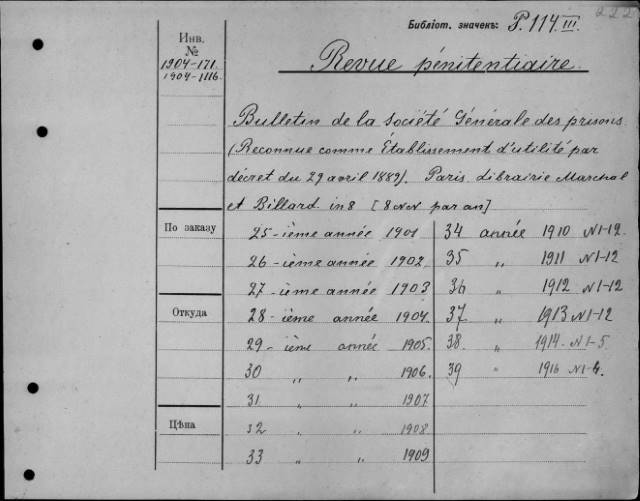 222
Библіот. значекъ: P. 114 III.
Инв.
№
1904-171
1904-1116.
Revue pénitentiaire.
Bulletin de la Société Générale des prisons.
(Reconnue comme Établissement d'utilité par
décret du 29 avril 1889). Paris. Librairie Marchal
et Billard. in 8 [8 NN par an]
По заказу
Откуда
Цѣна
25-ième année 1901
26-ième année 1902
27-ième année 1903
28-ième année 1904.
29-ième année 1905.
30 „ „ 1906.
31 „ „ 1907
32 „ „ 1908
33 „ „ 1909
34 année 1910 N1-12.
35 „ 1911 N1-12
36 „ 1912 N1-12
37 „ 1913 N1-12
38. „ 1914. N1-5
39 „ 1916 N1-4.